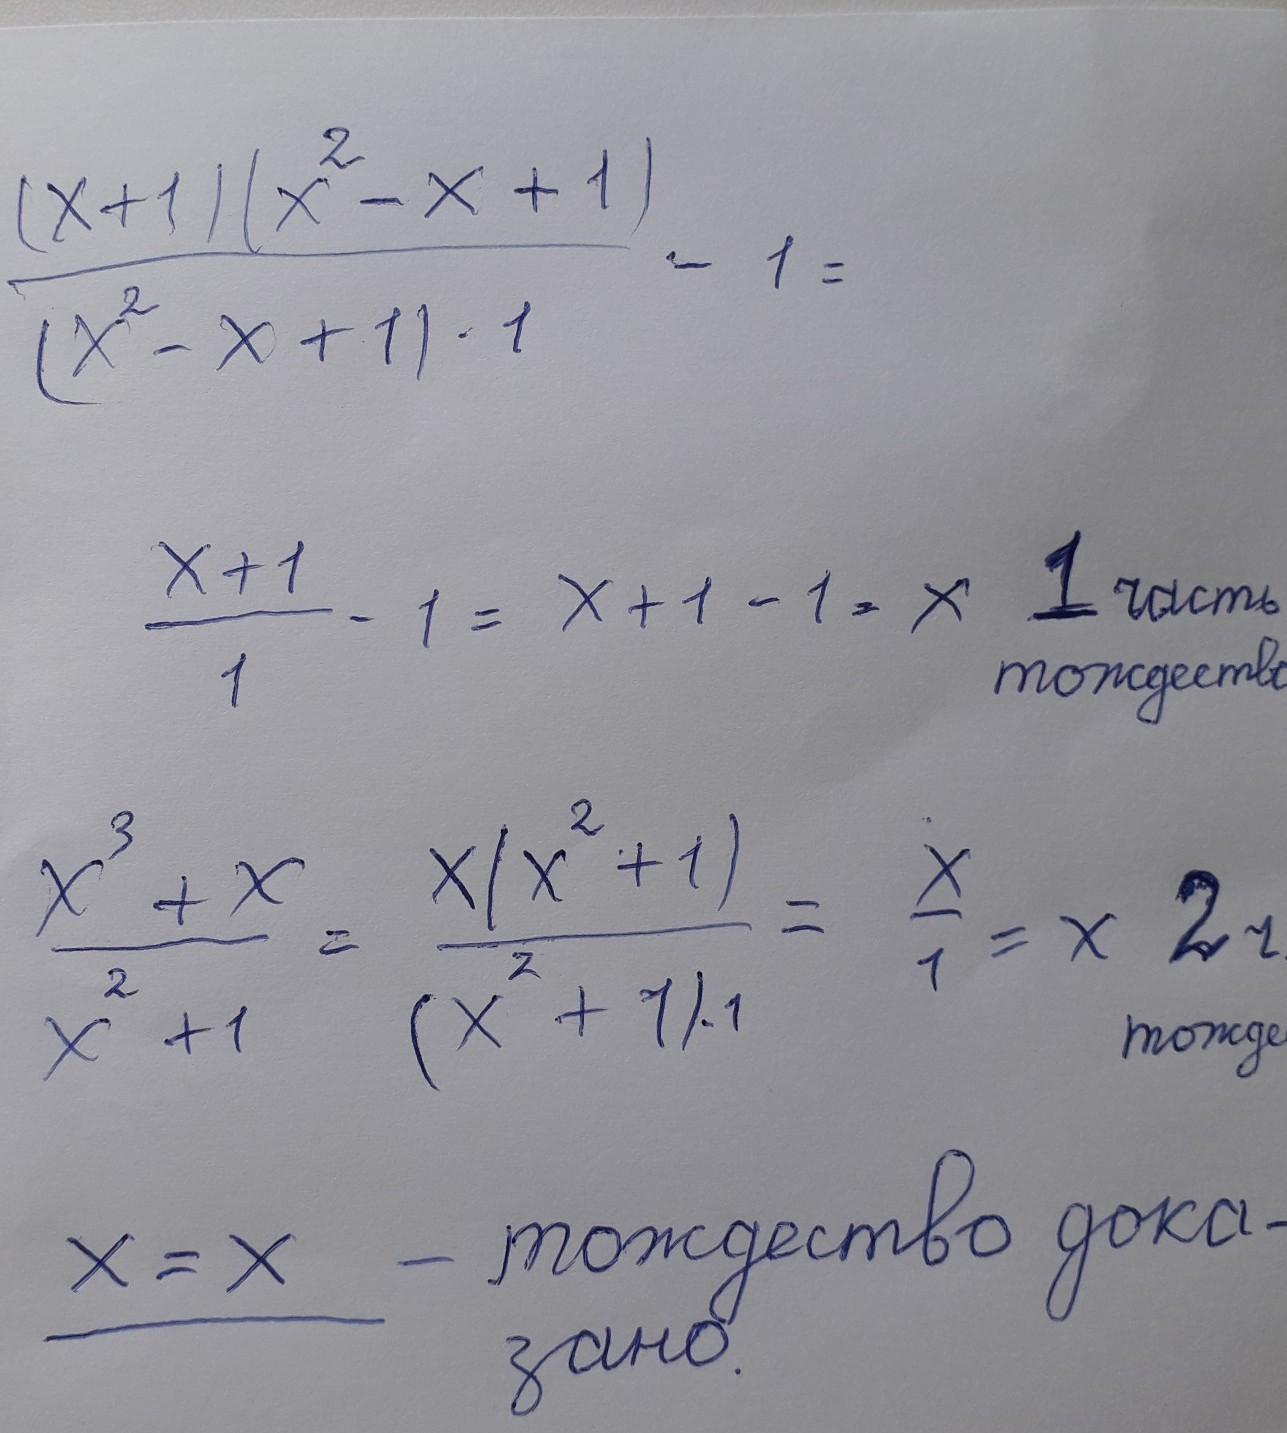 (x+1)(x²-x+1)
——————— - 1 =
(x²-x+1)·1
x+1
—— - 1 = x+1-1 = x 1 часть
1
тождество
x³+x / x²+1 = x(x²+1) / (x²+1)·1 = x/1 = x 2 ч.
тожде
x = x - тождество дока-
зано.